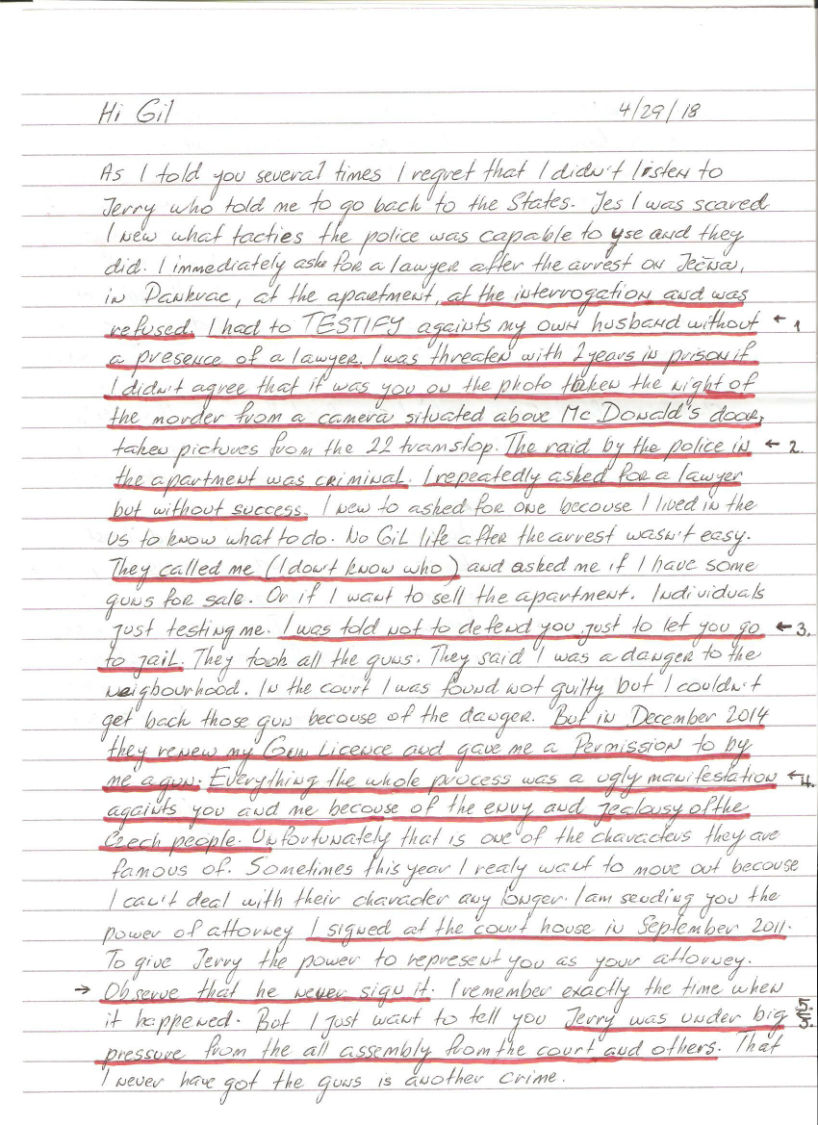 Hi Gil 4/29/18
As I told you several times I regret that I didn't listen to
Jerry who told me to go back to the States. Jes I was scared
I new what tacties the police was capable to yse and they
did. I immediately ask for a lawyer after the arrest on Ječná,
in Pankrac, at the apaetment, at the interrogation and was
refused. I had to TESTIFY againts my own husband without ← 1
a presence of a lawyer. I was threaten with 2 years in prison if
I didn't agree that if was you on the photo taken the night of
the morder from a camera situated above Mc Donald's door,
taken pictures from the 22 tramstop. The raid by the police in ← 2.
the apartment was criminal. I repeatedly asked for a lawyer
but without success. I new to asked for one becouse I lived in the
US to know what to do. No Gil life after the arrest wasn't easy.
They called me (I dont know who) and asked me if I have some
guns for sale. Or if I want to sell the apartment. Individuals
just testing me. I was told not to defend you just to let you go ← 3.
to jail. They took all the guns. They said I was a danger to the
neigbourhood. In the court I was found not guilty but I couldn't
get back those gun becouse of the danger. But in December 2014
they renew my Gun Licence and gave me a Permission to by
me a gun. Everything the whole process was a ugly manifestation ← 4.
againts you and me becouse of the envy and jealousy of the
Czech people. Unfortunately that is one of the characters they are
famous of. Sometimes this year I realy want to move out becouse
I can't deal with their character any longer. I am sending you the
power of attorney I signed at the court house in September 2011.
To give Jerry the power to represent you as your attorney.
→ Observe that he never sign it. I remember exactly the time when
it happened. But I just want to tell you Jerry was under big 5.
pressure from the all assembly from the court and others. That
I never have got the guns is another crime.